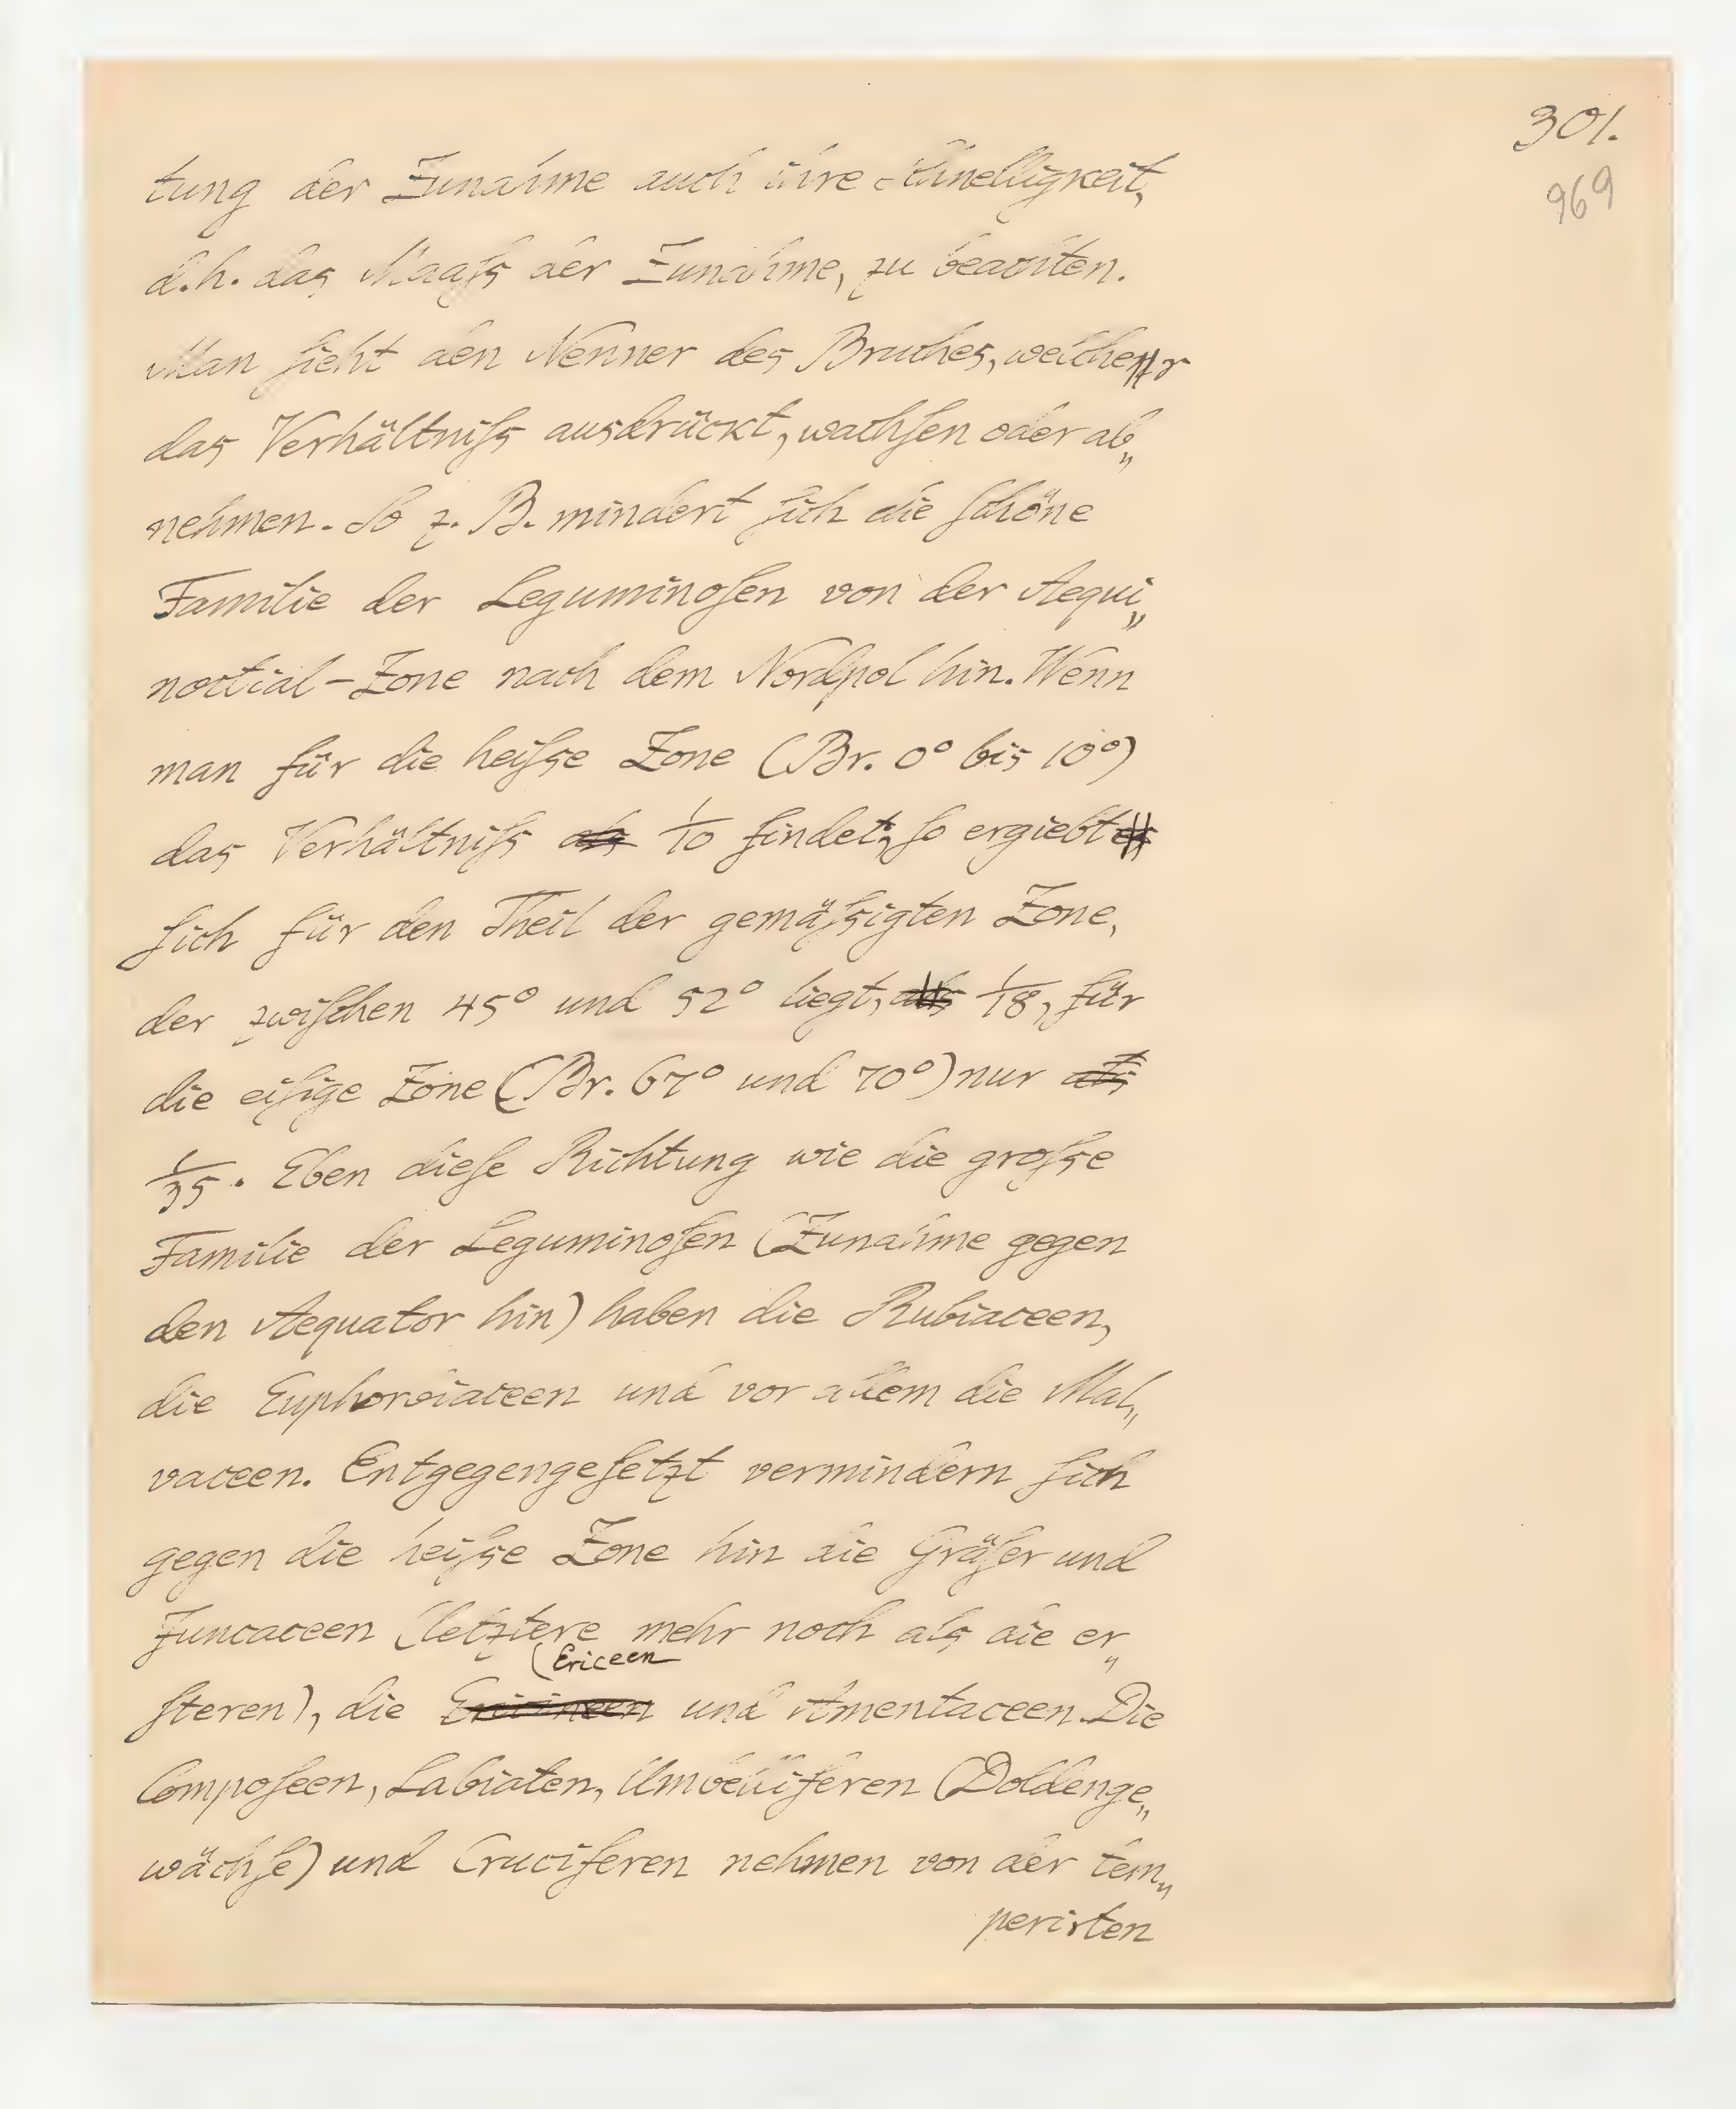 301.
969
tung der Zunahme auch ihre Schnelligkeit,
d.h. das Maaſs der Zunahme, zu beachten.
Man ſieht den Nenner des Bruches, welcher
das Verhältniſs ausdrückt, wachſen oder ab„
nehmen. So z. B. mindert ſich die ſchöne
Familie der Leguminoſen von der Aequi„
noctial-Zone nach dem Nordpol hin. Wenn
man für die heiſse Zone (Br. 0° bis 10°)
das Verhältniſs als 1/10 findet, ſo ergiebt es
ſich für den Theil der gemäſsigten Zone,
der zwiſchen 45° und 52° liegt, als 1/18, für
die eiſige Zone (Br. 67° und 70°) nur als
1/35. Eben dieſe Richtung wie die groſse
Familie der Leguminoſen (Zunahme gegen
den Aequator hin) haben die Rubiaceen,
die Euphorbiaceen und vor allem die Mal„
vaceen. Entgegengeſetzt vermindern ſich
gegen die heiſse Zone hin die Gräſer und
Juncaceen (letztere mehr noch als die er„
(Ericeen
ſteren), die Ericineen und Amentaceen. Die
Compoſeen, Labiaten, Umbelliferen (Doldenge„
wächſe) und Cruciferen nehmen von der tem„
perirten